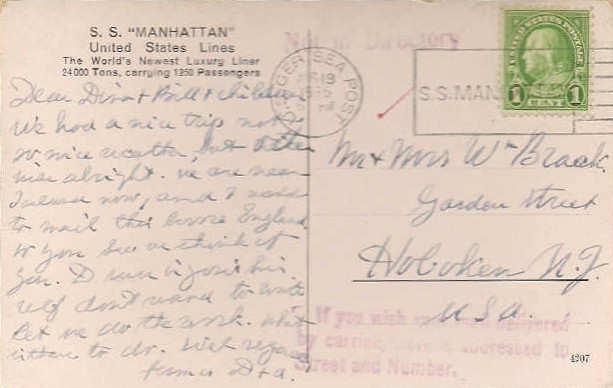 S. S. "MANHATTAN"
United States Lines
The World's Newest Luxury Liner
24000 Tons, carrying 1250 Passengers
Not in Directory
SEA POST
19
1935
S.S. MAN
UNITED STATES POSTAGE
1
1
Dear Dina & Bill & children
We had a nice trip not
so nice weather, but other
wise alright. we are near
now, and I want
to mail this before England
to you see we think of
you. D
self don't want to write
let me do the work. what
to do. Best regards
from D & a.
Mr & Mrs Wm Braack
Garden Street
Hoboken N.J.
USA.
If you wish delivered
by carrier, have it addressed to
Street and Number.
4207